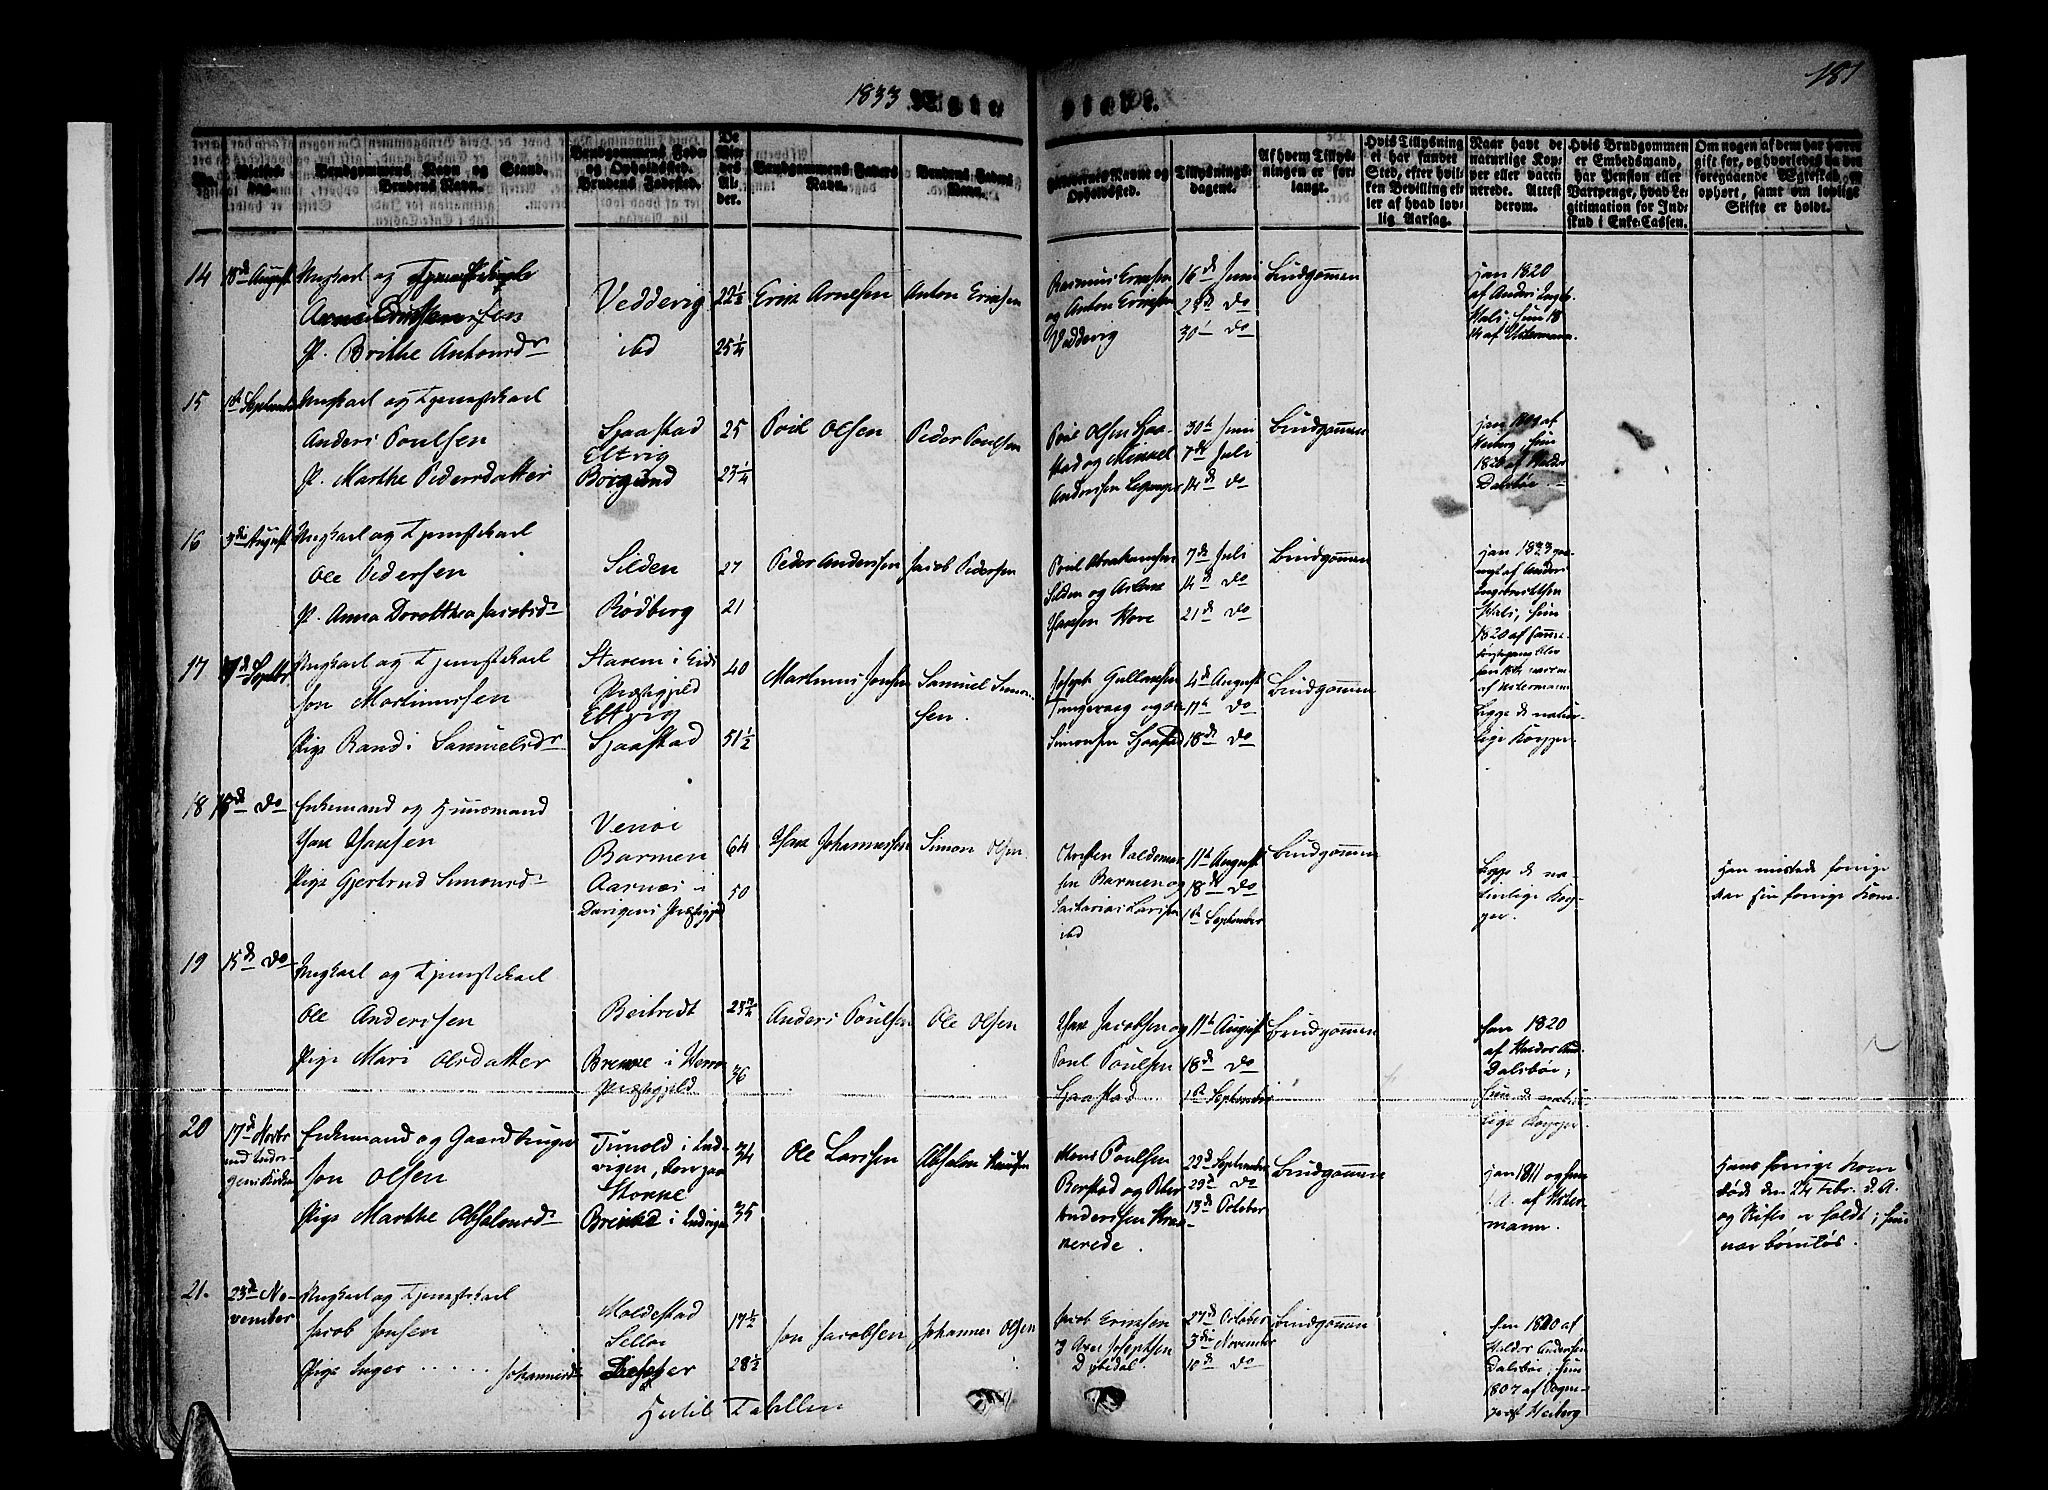 1833 Ægte
viede.
181
No.
Vielses-
dag.
Brudgommens Navn og Stand.
Brudens Navn.
Brudgommens Føde-
og Opholdssted.
Brudens Fødested.
De
Vie-
des
Al-
der.
Brudgommens Faders
Navn.
Brudens Faders
Navn.
Forlovernes Navne og
Opholdssted.
Tillysnings-
dagene.
Af hvem Tillys-
ningen er for-
langt.
Hvis Tillysning
ei har fundet
Sted, efter hvil-
ken Bevilling el-
ler af hvad lov-
lig Aarsag.
Naar have de
naturlige Kop-
per eller vacci-
nerede. Attest
derom.
Hvis Brudgommen
er Embedsmand,
har Pension eller
Vartpenge, hvad Le-
gitimation for Ind-
skud i Enke-Cassen.
Om nogen af dem har været
gift før, og hvorledes da det
foregaaende Ægteskab er
ophørt, samt om lovlige
Skifte er holdt.
14
18de August
Ungkarl og Tjenestekarl
Arne Ericksen
P. Brithe Antonsdr
Veddevig
ibd
22½
25¼
Erik Arnesen
Anton Eriksen
Rasmus Eriksen
og Anton Eriksen
Veddevig
16de Juni
23de do
30t do
Brudgommen
han 1820
af Anders Ingb.
Hals; hun 18
14 af Astermann.
15
1ste September
Ungkarl og Tjenestekarl
Anders Poulsen
P. Marthe Pedersdatter
Sjaastad
Eltvig
Borgund
25
23¼
Poul Olsen
Peder Poulsen
Poul Olsen Sjaa-
stad og Mikkel
Andersen Leganger
30te Juni
7de Juli
14de do
Brudgommen
Heiberg, hun
1820 af Haldor
Dalsbøe
16
Ungkarl og Tjenestekarl
Ole Pedersen
P. Anna Dorotthea Jacobsdr
Silden
Rødberg
27
21
Peder Andersen
Jacob Pedersen
Poul Abrahamsen
Silden og
Hansen Hove
7de Juli
14de do
21de do
Brudgommen
han 1833
af Anders
Ingebrichtsen
Hals, hun
1820 af samme
17
Ungkarl og Tjenestekarl
Jon Martinussen
Pige Randi Samuelsdr
Staren i Eids
Præstegjeld
Eltvig
Sjaastad
40
51½
Martinus Jonsen
Samuel Simon-
sen.
Joseph Gullaksen
Tungevaag og
Simonsen Sjaastad
4de August
11te do
18de do
Brudgommen
af Astermann
begge de natur-
lige Kopper.
18
15de do
Enkemand og Huusmand
Hans Hansen
Pige Gjertrud Simonsdr
Venøi
Barmen
Aarnæs i
Davigens Præstegjeld
64
50
Hans Johannessen
Simon Olsen
Christen Valdemar-
sen Barmen og
Zacharias Larsen
ibd
11te August
18de do
1ste September
Brudgommen
Begge de na-
turlige Kop-
per.
Han mistede forrige
Aar sin forrige Kone.
19
15de do
Ungkarl og Tjenestekarl
Ole Anderssen
Pige Mari Olsdatter
Brække i Horn.
Præstegjeld
23¾
36
Anders Poulsen
Ole Olsen
Hans Jacobsen og
Poul Poulsen
Sjaastad
11te August
18de do
1ste September
Brudgommen
han 1820
af Haldor And.
Dalsbøe;
hun de natur-
lige Kopper.
20
17de Novbr
Enkemand og Gaardbruger
Jon Olsen
Pige Marthe Absalonsdr
34
35
Ole Larsen
Absalon Knudsen
Mons Poulsen
Berstad og Peder
Andersen
22de September
29de do
13de October
Brudgommen
han 1811 og hun
af Aster-
mann.
Hans forrige Kone
døde den 24 Febr. d. A.
og Skifte er holdt; hun
var barnløs.
21.
23de No-
vember
Ungkarl og Tjenestekarl
Jacob Jonsen
Pige Inger ..... Johannesdr
Moldestad
Selløe
17½
28½
Jon Jacobsen
Johannes Olsen
Jacob Eriksen
27de October
3die November
10de do
Brudgommen
han 1820 af
Haldor Andersen
Dalsbøe; hun
1807 af Sogne-
præst Heiberg
Hertil Tabellen